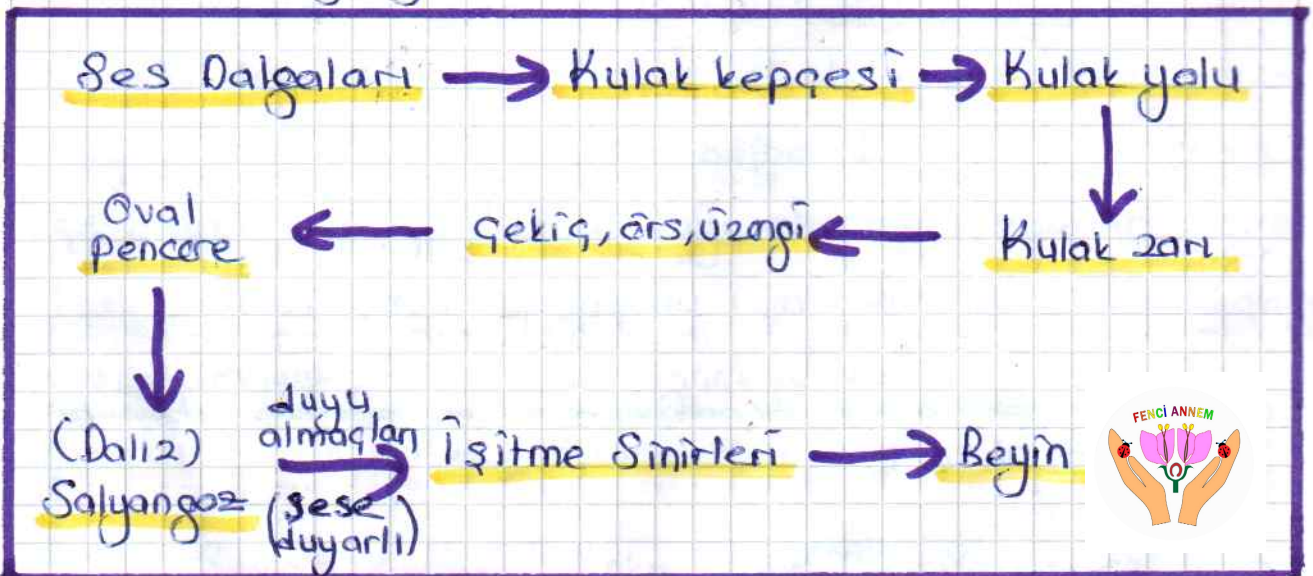 Ses Dalgaları → Kulak kepçesi → Kulak yolu
Oval
pencere ← Çekiç, örs, üzengi ← Kulak zarı
(Dalız)
Salyangoz
duyu
almaçları
(sese
duyarlı)
İşitme Sinirleri → Beyin
FENCİ ANNEM